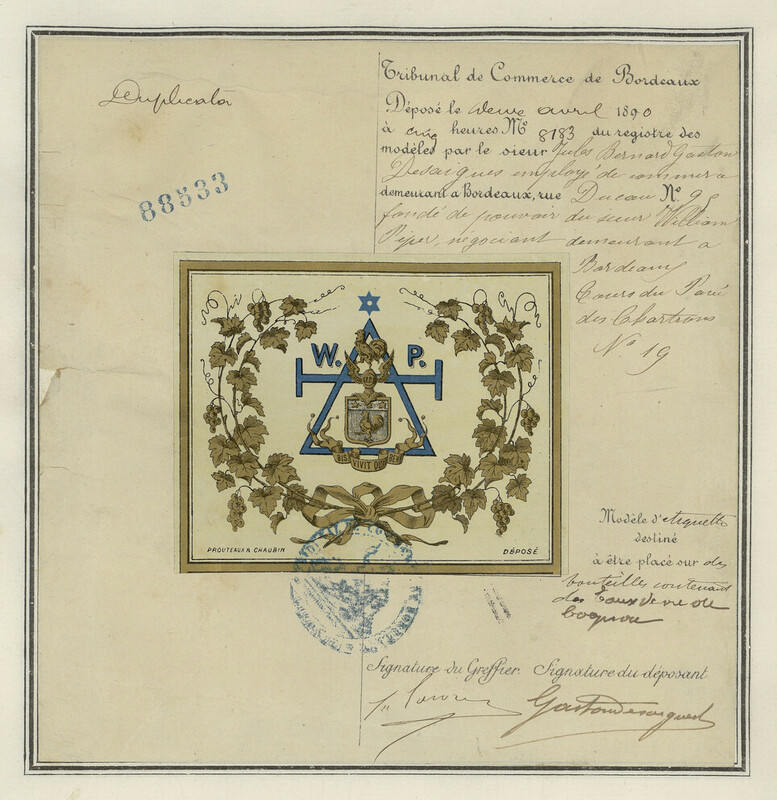 Duplicata
88533
Tribunal de Commerce de Bordeaux
Déposé le avril 1890
à cinq heures No 8183 du registre des
modèles par le sieur Jules Bernard Gaston
Desaigues employé de commerce
demeurant a Bordeaux, rue Ducau No 95
fondé de pouvoir du sieur William
Piper, négociant demeurant a
Bordeaux
Cours du Pavé
des Chartrons
No 19
W. P.
BIS VIVIT QUI BENE
PROUTEAUX & CHAUBIN
DÉPOSÉ
Modèle d'étiquette
destiné
à être placé sur des
bouteilles contenant
des Eaux de vie de
Cognac
Signature du Greffier. Signature du déposant